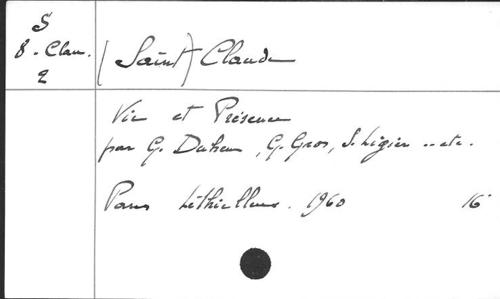 S
8 - Clau.
2
(Saint) Claude
Vie et Présence
par G. Duhem, G. Gros, S. Ligier .. etc.
Paris Lethielleux. 1960 16